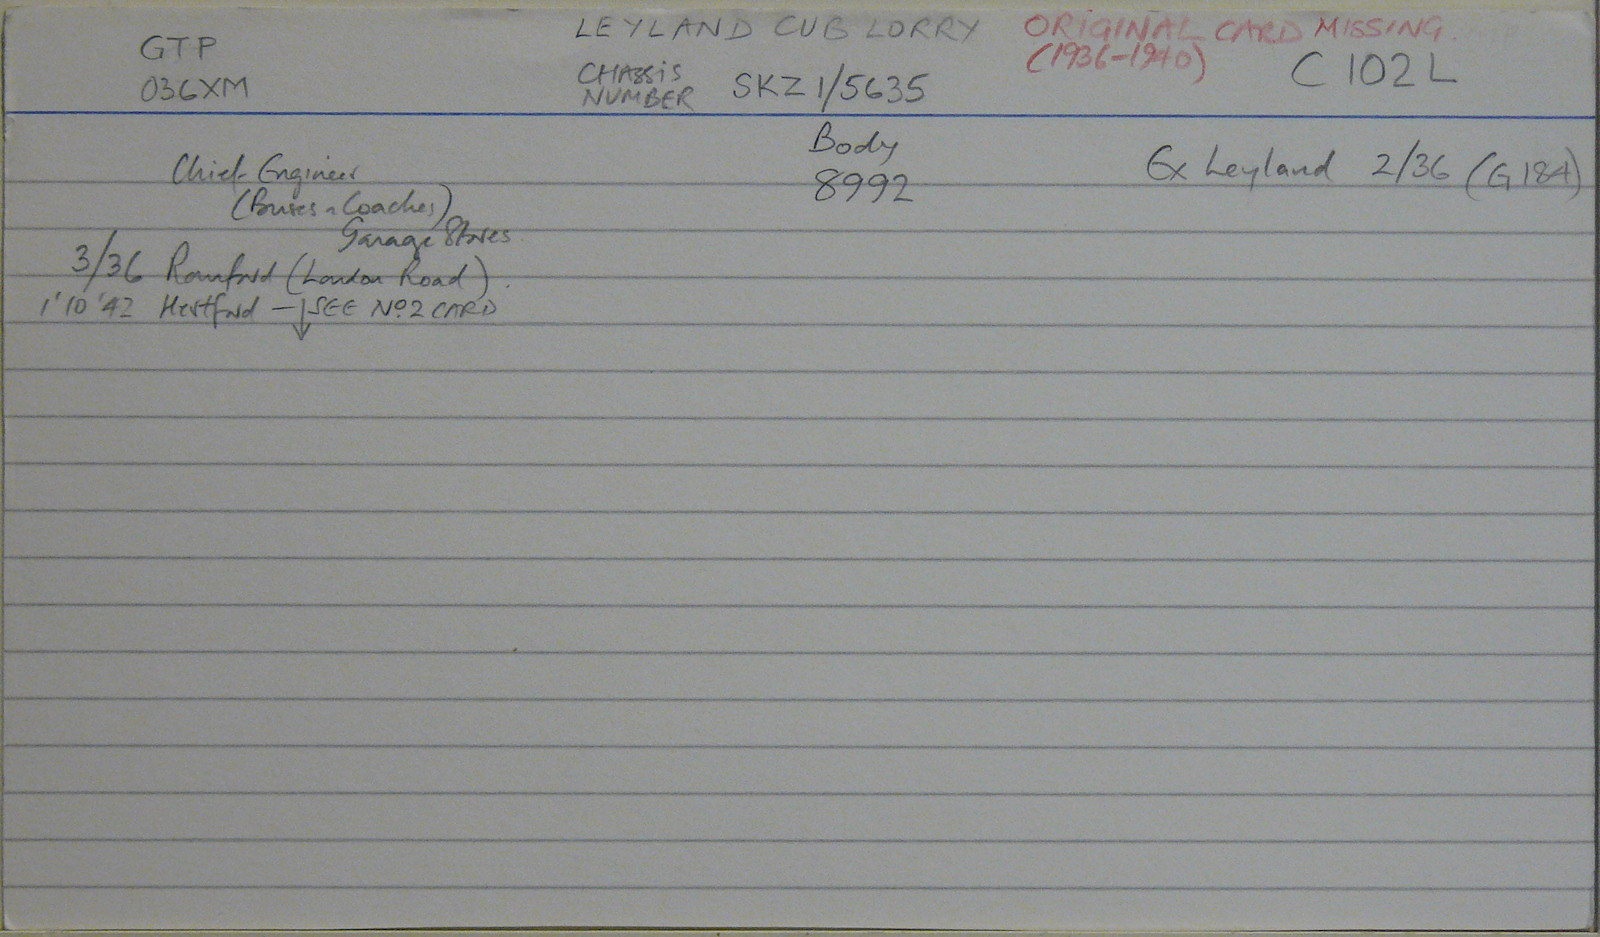 GTP
036XM
LEYLAND CUB LORRY
CHASSIS NUMBER SKZ 1/5635
ORIGINAL CARD MISSING
(1936-1940)
C 102 L
Chief Engineer
(Buses & Coaches)
Garage Stores
3/36 Romford (London Road).
1'10'42 Hertford — SEE No2 CARD
Body
8992
Ex Leyland 2/36 (G184)